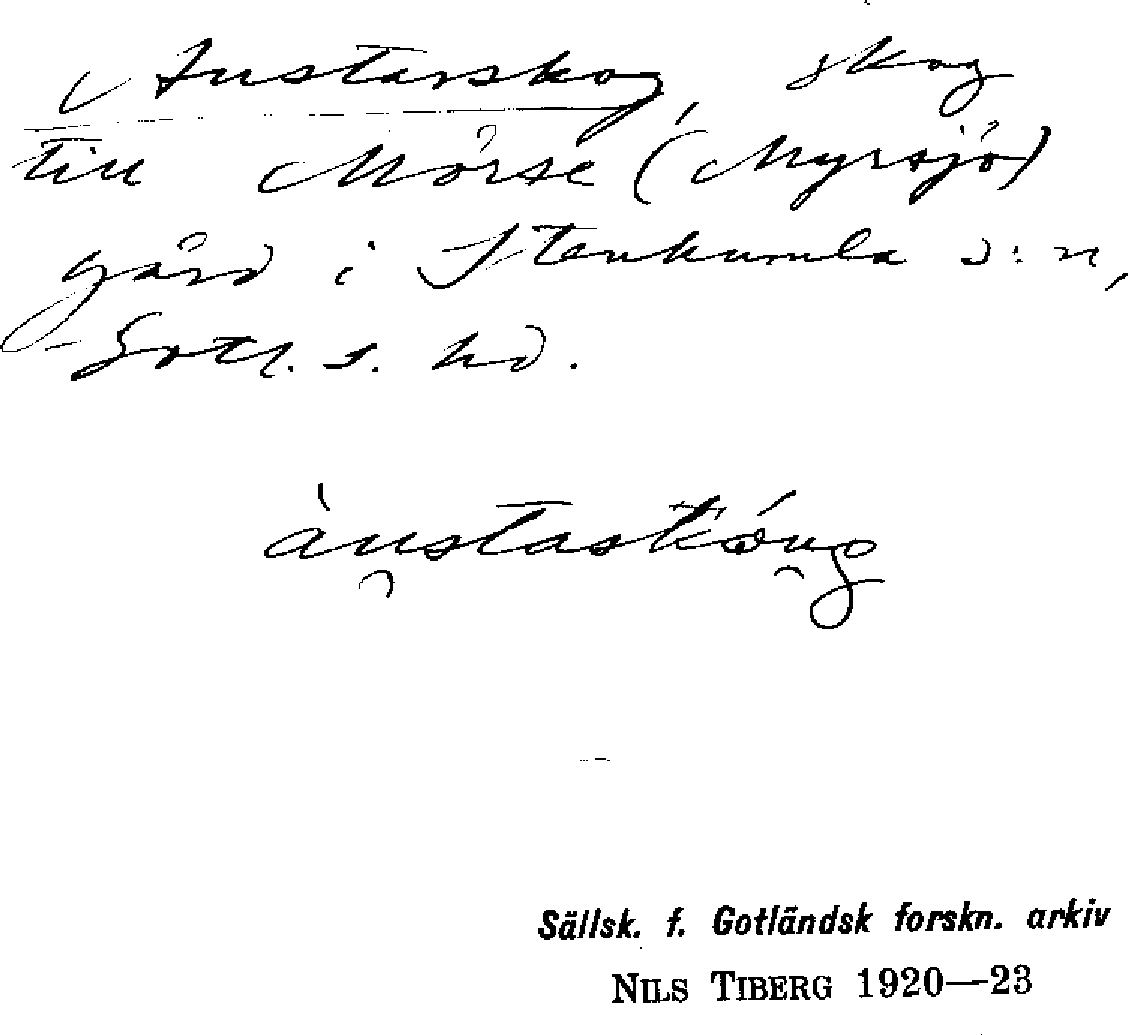 Austarskog, skog
till Mörse (Myrsjö)
gård i Stenkumla s:n,
Gotl. s. hd.
àu̯staskóu̯g
Sällsk. f. Gotländsk forskn. arkiv
NILS TIBERG 1920—23